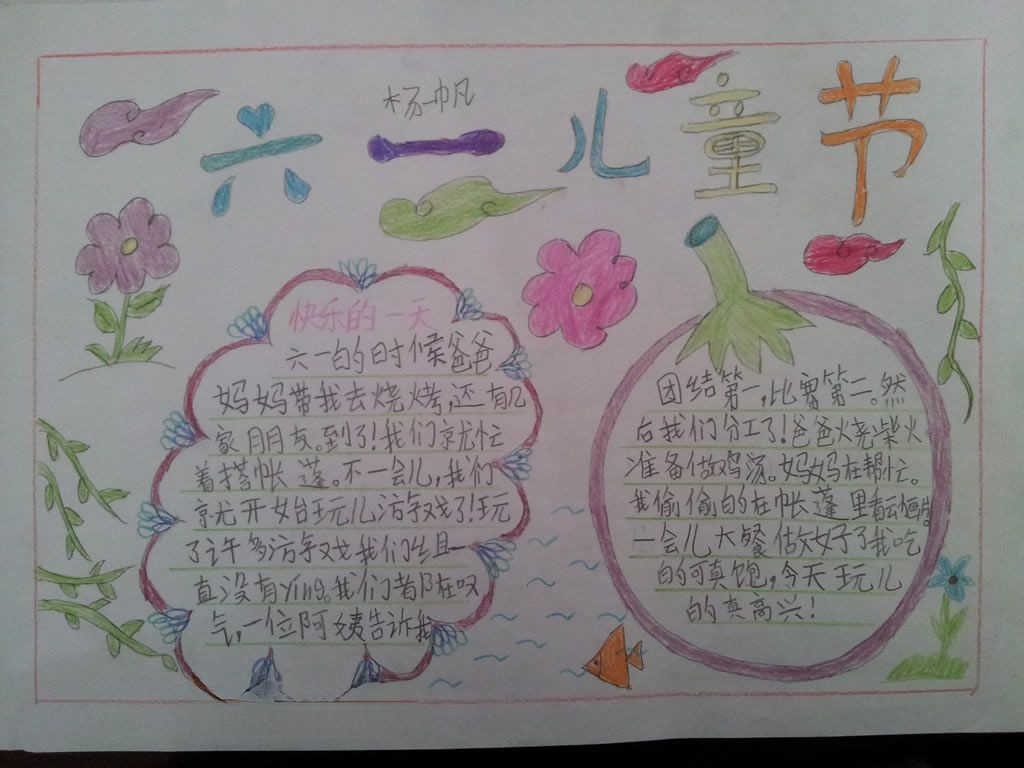 杨帆
六一儿童节
快乐的一天
六一的时候爸爸
妈妈带我去烧烤,还有几
家朋友。到了!我们就忙
着搭帐蓬。不一会儿,我们
就开始玩儿游戏了!玩
了许多游戏我们组一
直没有ying。我们都在叹
气,一位阿姨告诉我
团结第一,比赛第二。然
后我们分工了!爸爸烧柴火
准备做鸡汤。妈妈在帮忙。
我偷偷的在帐蓬里看动画片。
一会儿大餐做好了我吃
的可真饱,今天玩儿
的真高兴!